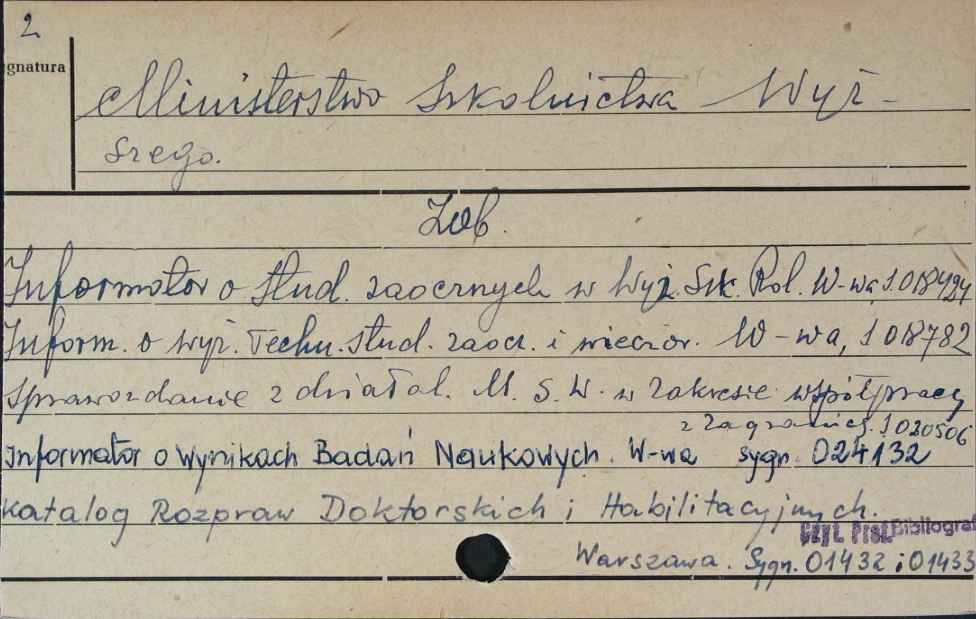 2
gnatura
Ministerstwo Szkolnictwa Wyż-
szego.
Zob.
Informator o stud. zaocznych w Wyż. Szk. Rol. W-wa,
Inform. o wyż. Techn. stud. zaocz. i wieczor. W-wa, 1018782
Sprawozdanie z działal. M. S. W. w zakresie współpracy
z zagranicą. 1020506
Informator o Wynikach Badań Naukowych. W-wa sygn. 024132
Katalog Rozpraw Doktorskich i Habilitacyjnych.
Czyt. Prof. Bibliograf
Warszawa. Sygn. 01432 i 01433